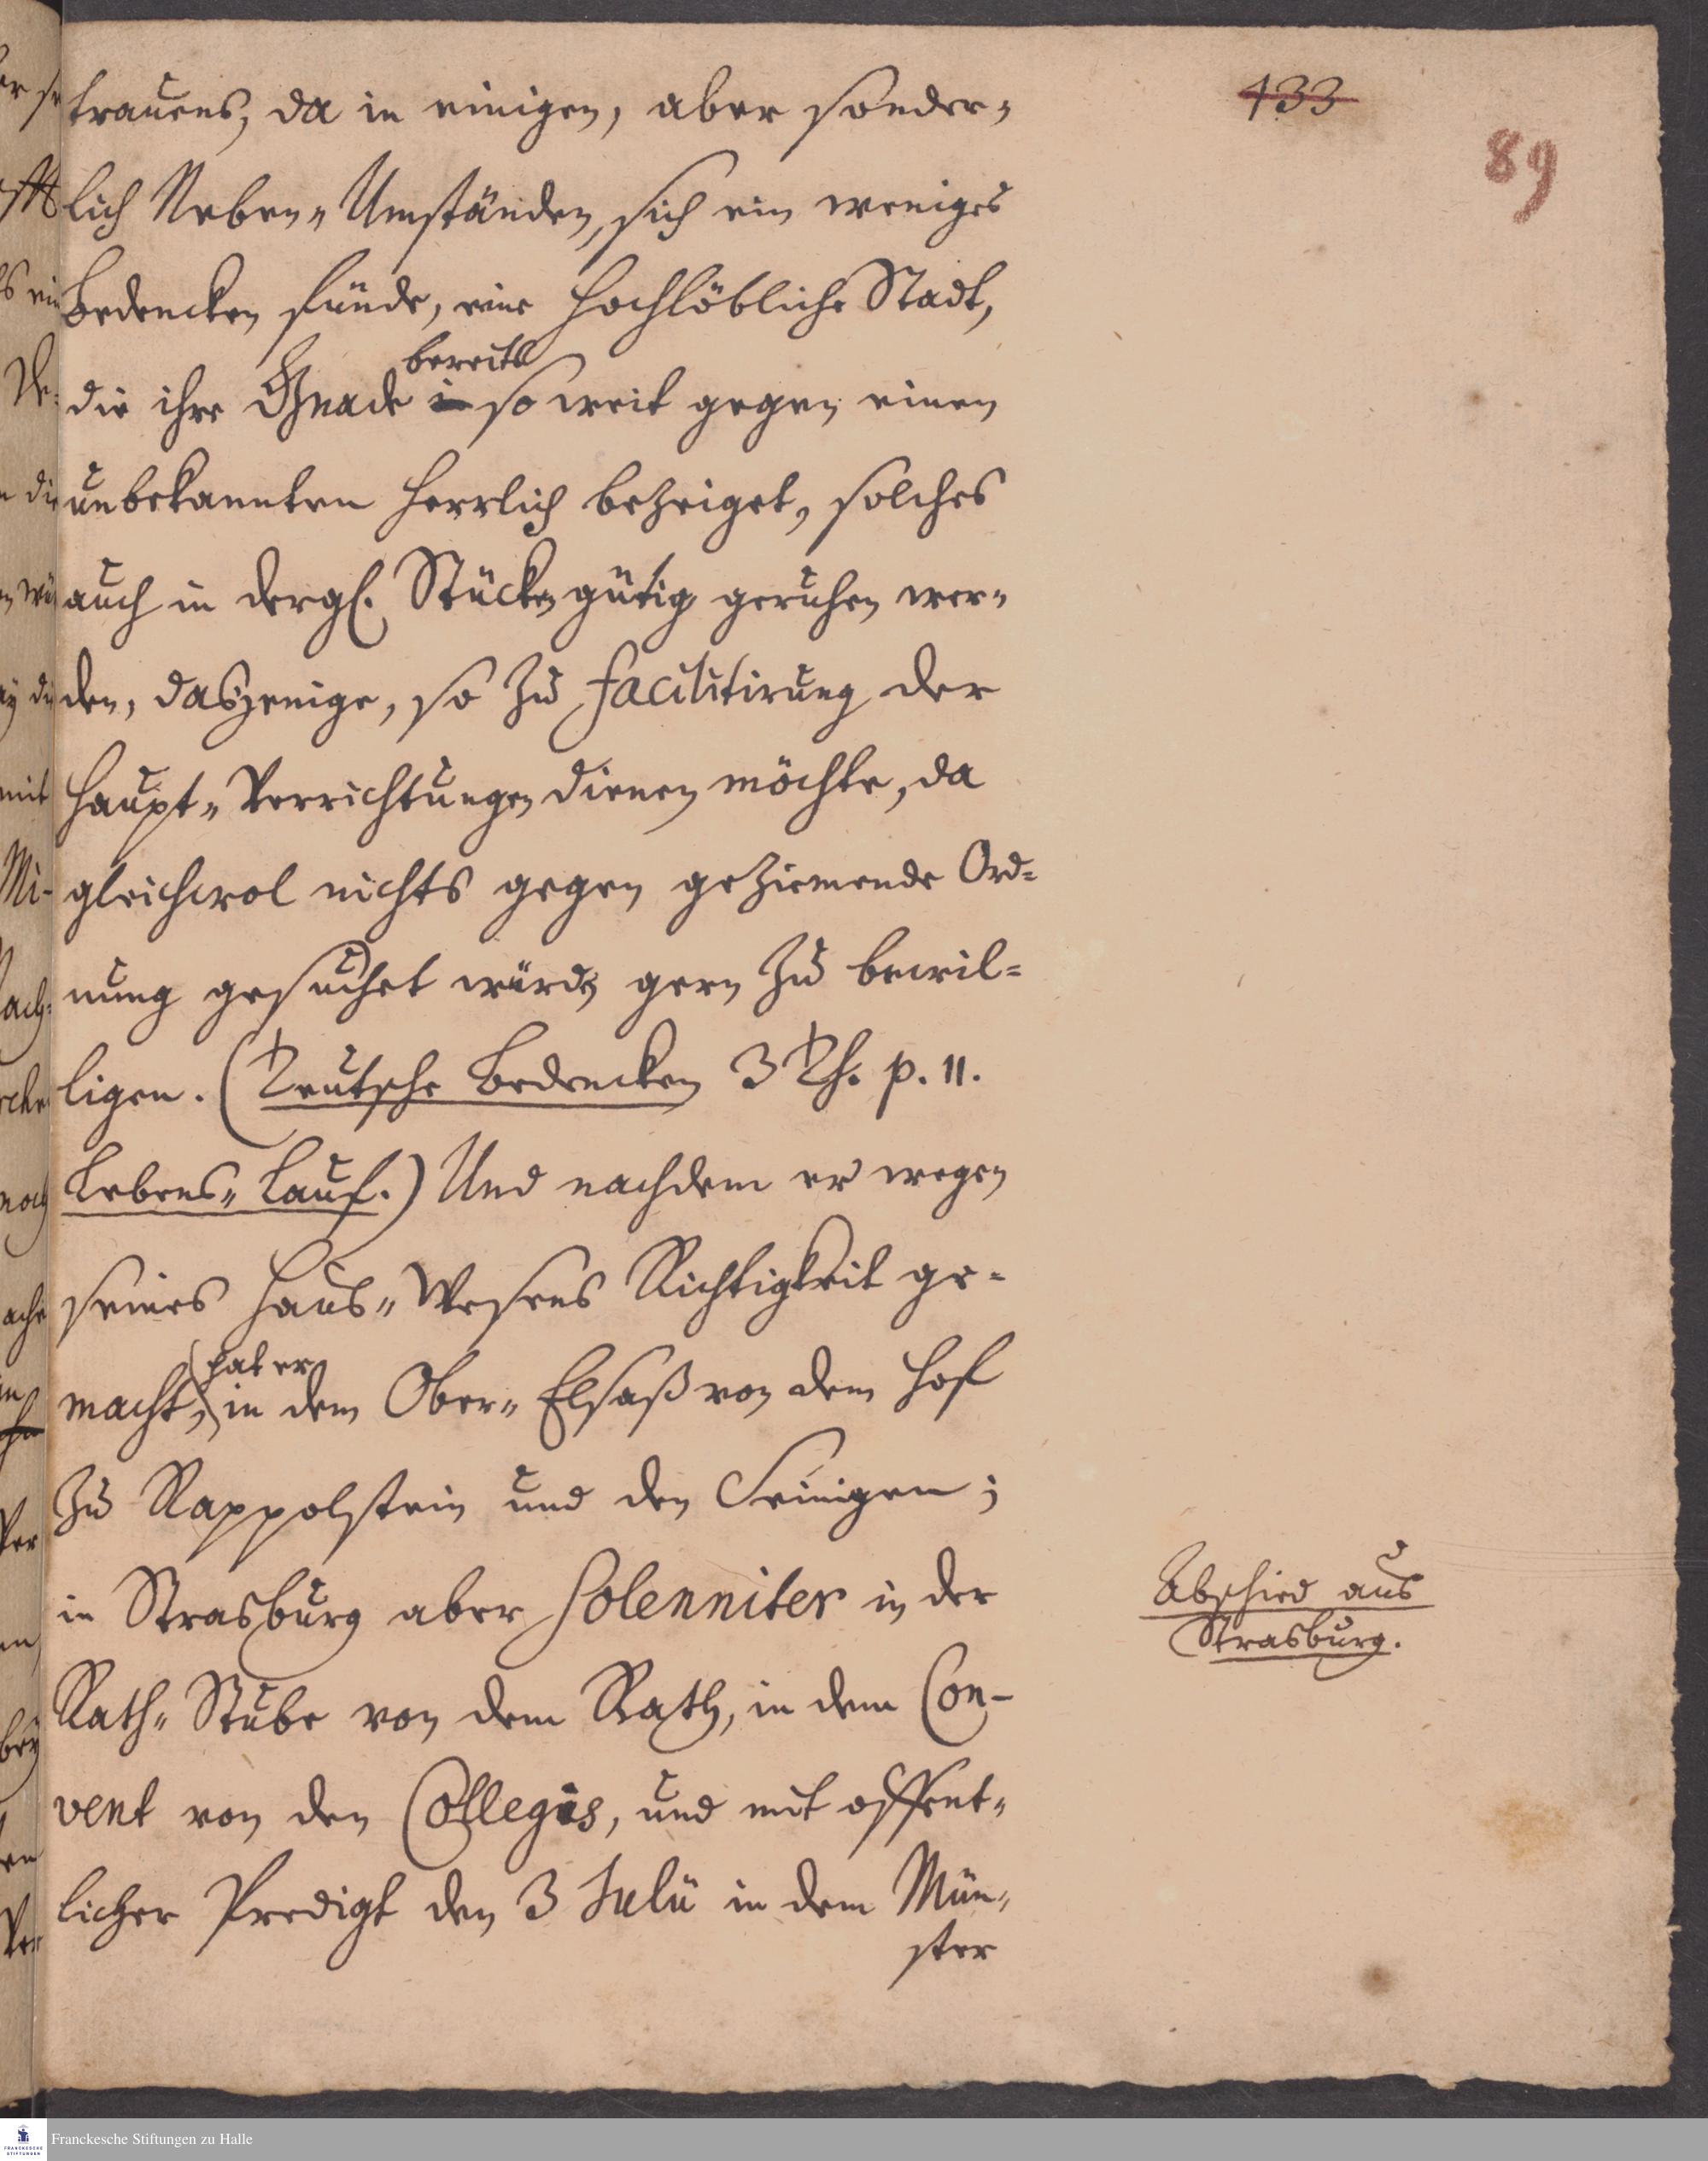 133
89
trauens, da in einigen, aber sonder-
lich Neben-Umständen, sich ein weniges
Bedencken fünde, eine Hochlöbliche Stadt,
bereits
die ihre Gnade so weit gegen einen
unbekannten herrlich bezeiget, solches
auch in dergl. Stücken gütig geruhen wer-
den, dasjenige, so zu facilitirung der
Haupt-Verrichtungen dienen möchte, da
gleichwol nichts gegen geziemende Ord-
nung gesuchet würde, gern zu bewil-
ligen. (Teutsche Bedencken 3 Th. p. 11.
Lebens-Lauf.) Und nachdem er wegen
seines Haus-Wesens Richtigkeit ge-
hat er
macht, in dem Ober-Elsaß von dem Hof
zu Rappolstein und den Seinigen;
in Strasburg aber solenniter in der
Rath-Stube von dem Rath, in dem Con-
vent von den Collegis, und mit offent-
licher Predigt den 3 Julii in dem Mün-
ster
Abschied aus
Strasburg.
Franckesche Stiftungen zu Halle